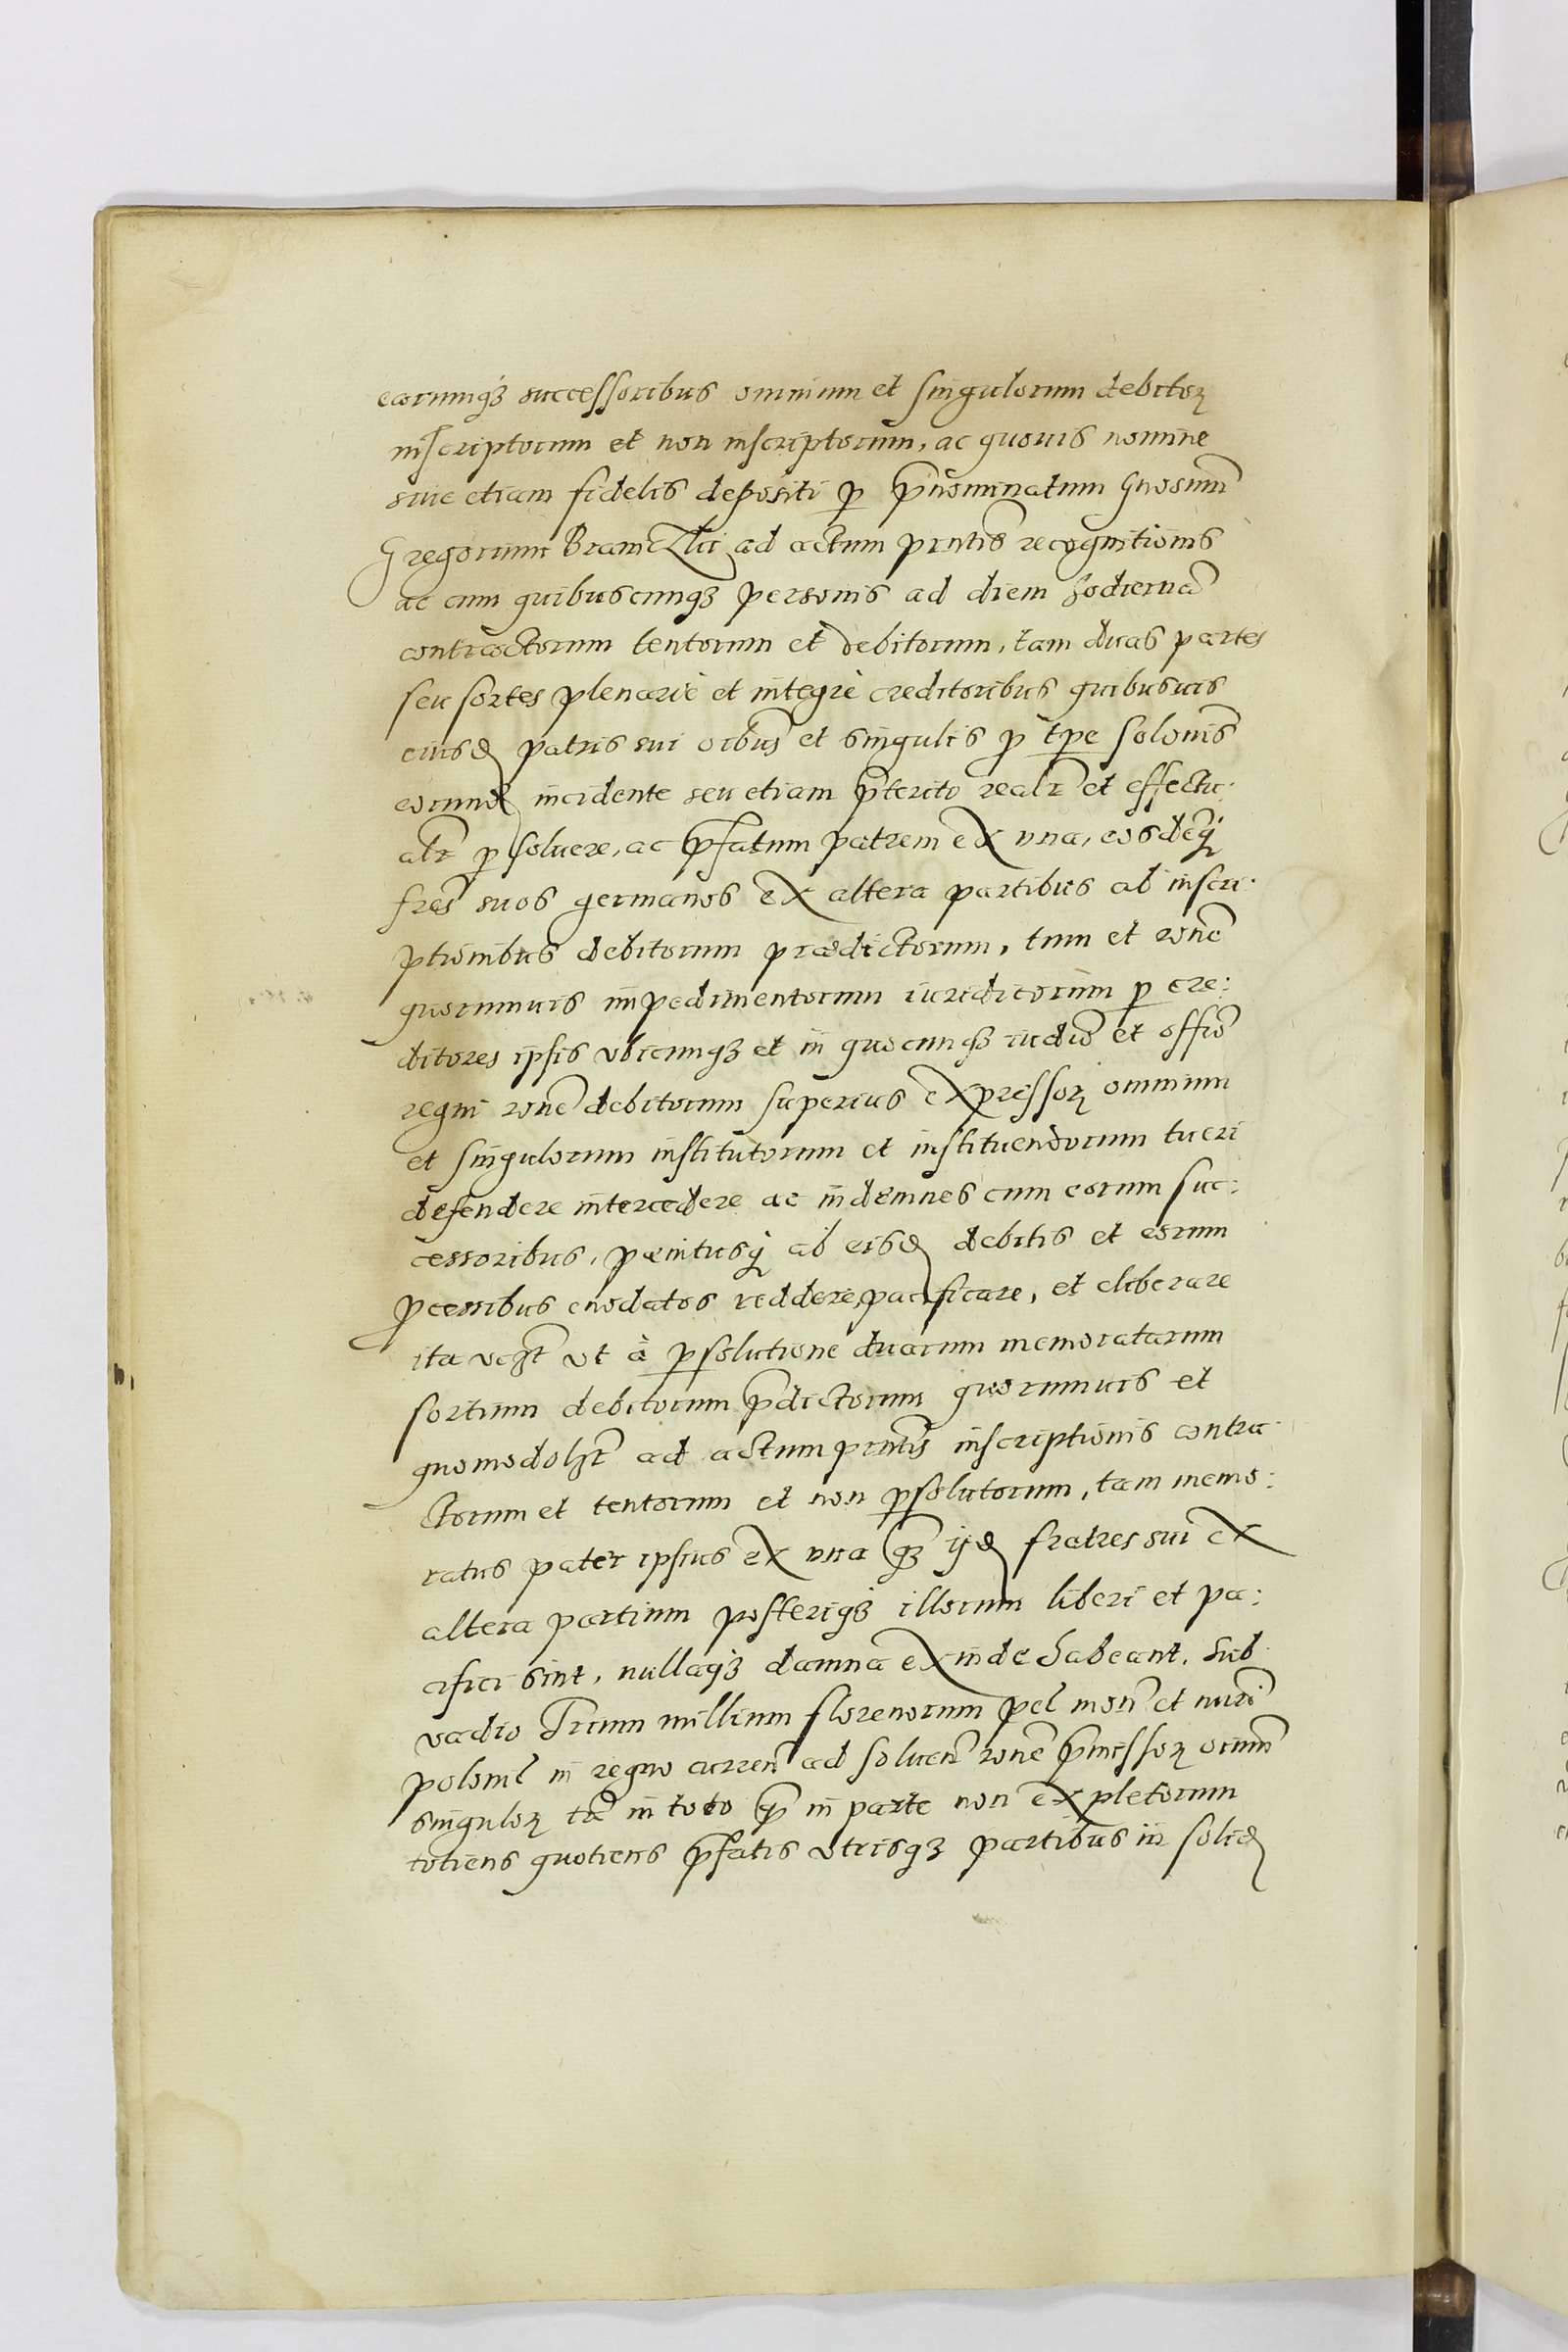 earumqȝ successoribus omnium et singulorum debitoꝝ
inscriptorum et non inscriptorum, ac quouis nomine
siue etiam fidelis depositi ꝑ p̃nominatum Gnosum̃
Gregorium ad actum pñtis recognitionis
ac cum quibuscunqȝ personis ad diem hodiernã
contractorum tentorum et debitorum, tam duas partes
seu sortes plenariè et integrè creditoribus quibusuis
eiusđ patris sui oibus̃ et singulis ꝓ tp̃e solonis̃
eorunđ incidente seu etiam p̃terito realr̃ et effectu:
alr̃ ꝑsoluere, ac p̃fatum patrem ex vna, eosdẽq́
fres̃ suos germanos ex altera partibus ab inscri:
ptionibus debitorum prædictorum, tum et ronẽ
quorumuis impedimentorum iuridicorum ꝑ cre:
ditores ipsis vbicunqȝ et in quocunqȝ iudiõ et offiõ
regni ronẽ debitorum superius expressoꝝ omnium
et singulorum institutorum et instituendorum tueri
defendere intercedere ac indemnes cum eorum suc:
cessoribus, pænitusq́ ab eisđ debitis et eorum
ꝓcessibus enodatos reddere, pacificare, et eliberare
ita vaȝt̃ vt à ꝑsolutione duarum memoratarum
sortium debitorum p̃dictorum quorumuis et
quomodolȝt̃ ad actum pñtis inscriptionis contra:
ctorum et tentorum et non ꝑsolutorum, tam memo:
ratus pater ipsius ex vna qȝ̃ ijđ fratres sui ex
altera partium posteriqȝ illorum liberi et pa:
cifici sint, nullaqȝ damna exinde habeant. Sub
vadio Trium millium florenorum pcł moñ et nurĩ
polonił in regno curreñ ad soluen̄ ronẽ p̃missoꝝ oium̃
singuloꝝ tã in toto q̃ in parte non expletorum
totiens quotiens p̃fatis vtrisqȝ partibus in solidꝫ